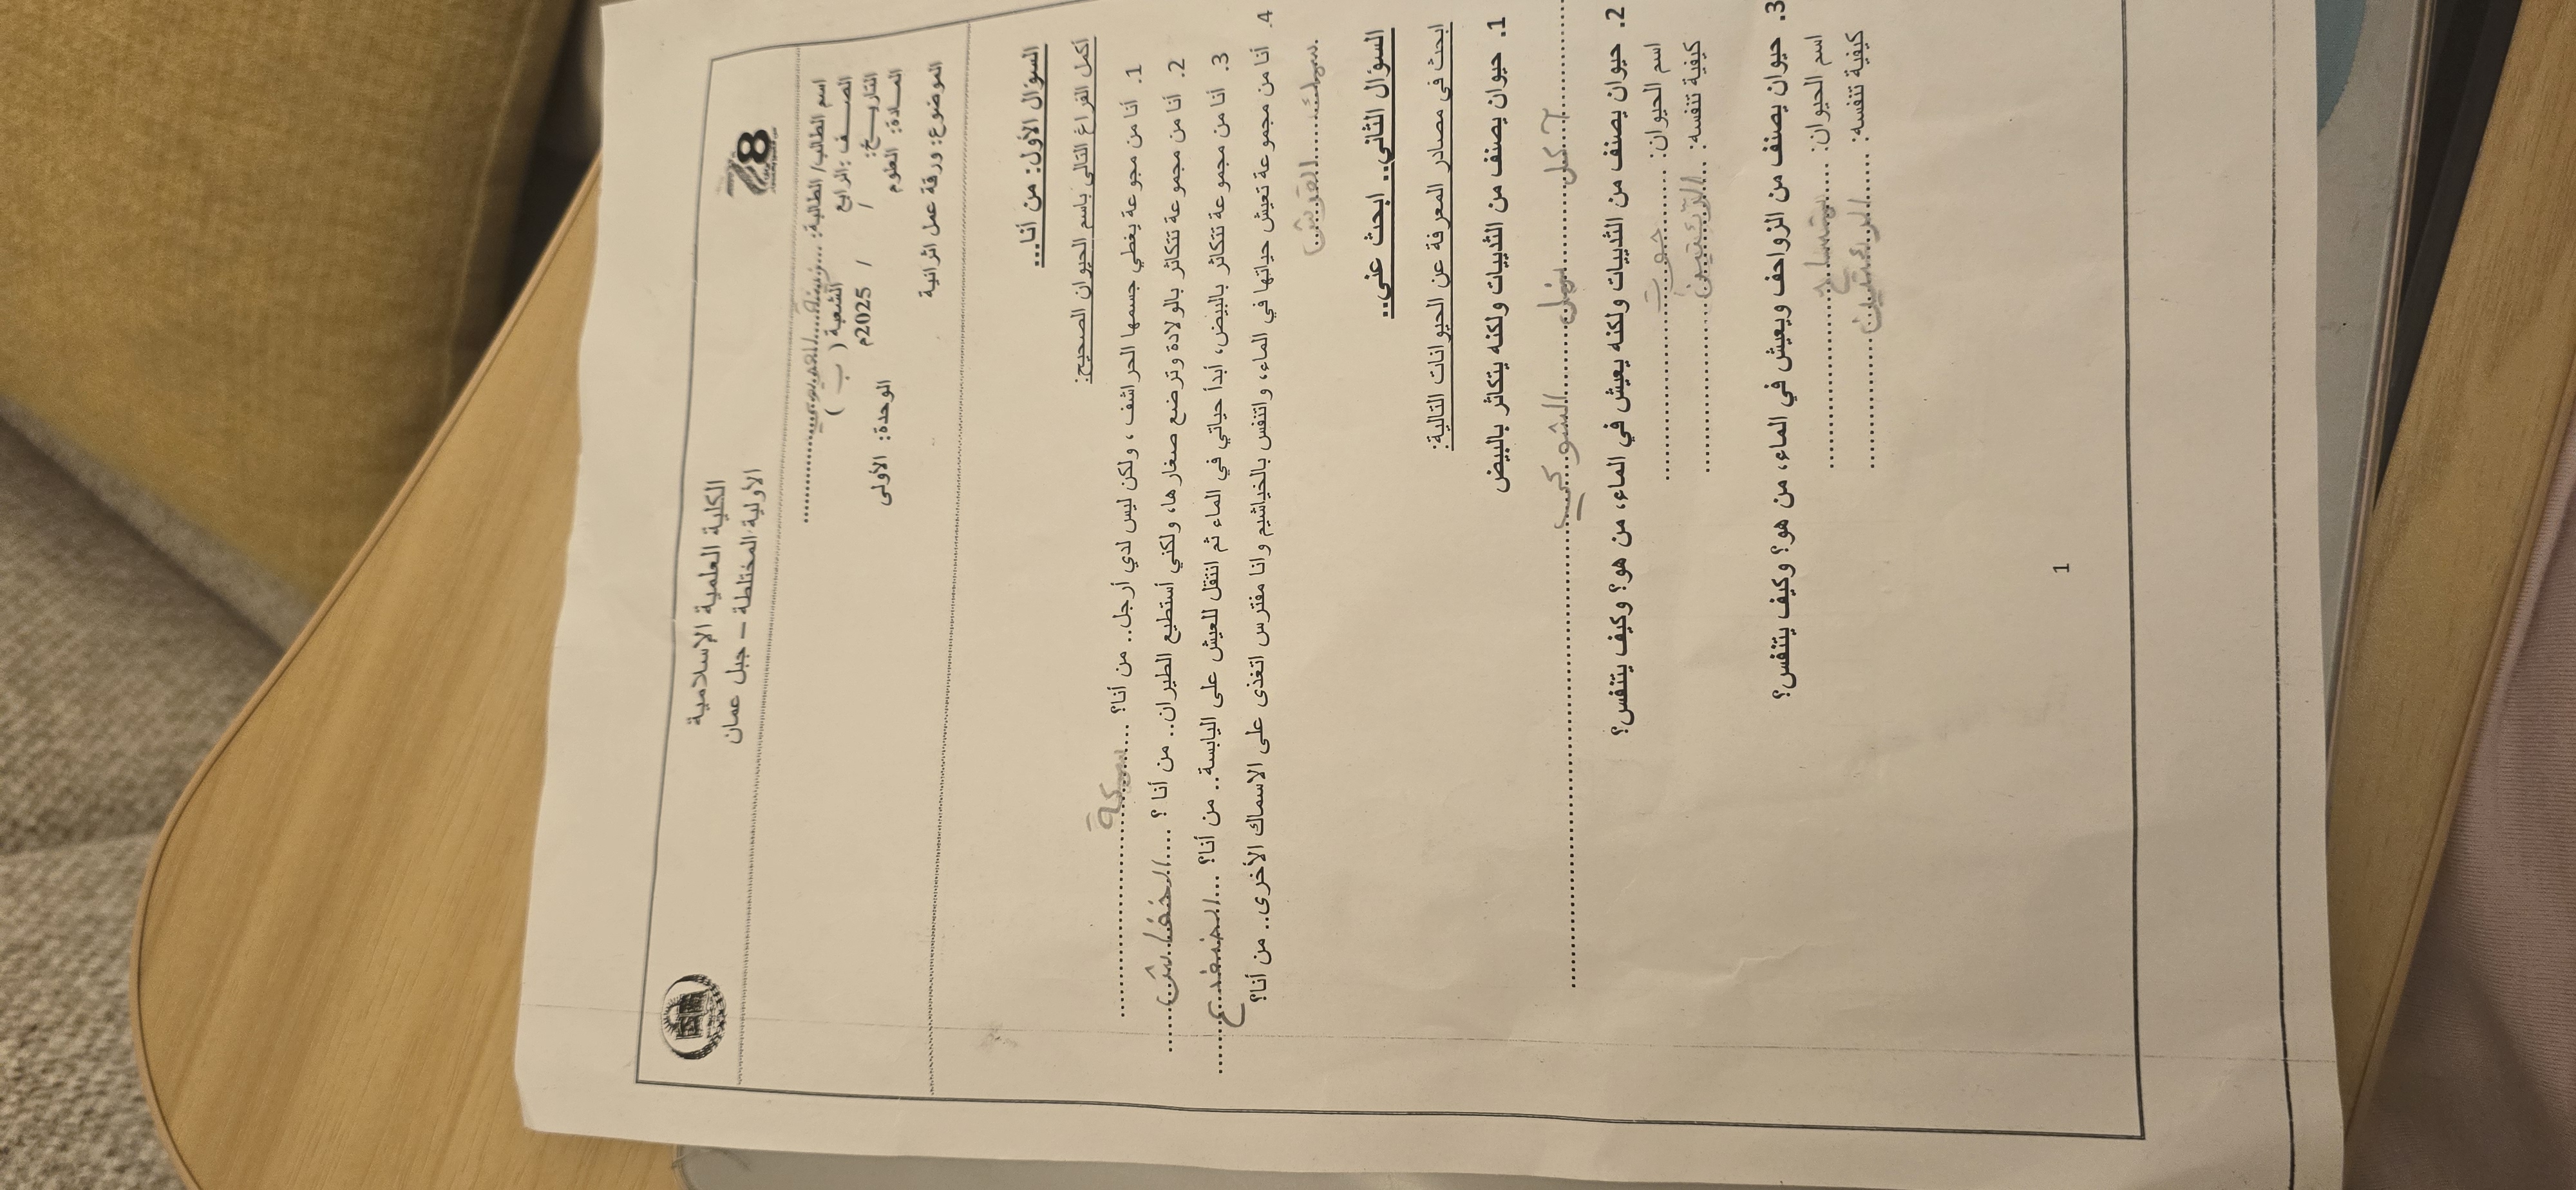 الكلية العلمية الإسلامية
الأولية المختلطة – جبل عمان
78
اسم الطالب/ الطالبة: ....................
الصـــــف :الرابع الشعبة ( ب )
التاريـــــخ: / / 2025م
المـــادة: العلوم الوحدة: الأولى
الموضوع: ورقة عمل اثرائية
السؤال الأول: من أنا...
أكمل الفراغ التالي باسم الحيوان الصحيح:
1. أنا من مجوعة يغطي جسمها الحراشف ، ولكن ليس لدي أرجل.. من أنا؟ ....سمكة....
2. أنا من مجموعة تتكاثر بالولادة وترضع صغارها، ولكني أستطيع الطيران.. من أنا ؟ ....الخفاش....
3. أنا من مجموعة تتكاثر بالبيض، أبدأ حياتي في الماء ثم انتقل للعيش على اليابسة.. من أنا؟ ....الضفدع....
4. أنا من مجموعة تعيش حياتها في الماء، واتنفس بالخياشيم وانا مفترس اتغذى على الاسماك الأخرى.. من أنا؟
سمك القرش
السؤال الثاني.. ابحث عني..
ابحث في مصادر المعرفة عن الحيوانات التالية:
1. حيوان يصنف من الثدييات ولكنه يتكاثر بالبيض
آكل نمل الشوكي
2. حيوان يصنف من الثدييات ولكنه يعيش في الماء، من هو؟ وكيف يتنفس؟
اسم الحيوان: ....حوت....
كيفية تنفسه: ....الرئتين....
3. حيوان يصنف من الزواحف ويعيش في الماء، من هو؟ وكيف يتنفس؟
اسم الحيوان: ....تمساح....
كيفية تنفسه: ....الرئتين....
1